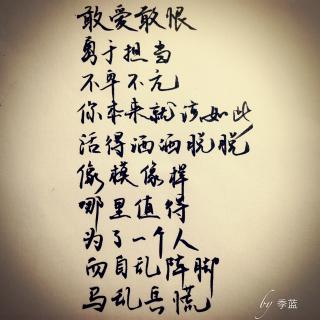 敢爱敢恨
勇于担当
不卑不亢
你本来就该如此
活得洒洒脱脱
像模像样
哪里值得
为了一个人
而自乱阵脚
马乱兵慌
by 季蓝